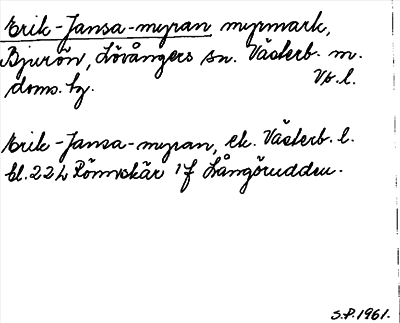 Erik-Jansa-myran myrmark,
Bjurön, Lövångers sn. Västerb. m.
doms. hg. Vb. l.
Erik-Jansa-myran, ek. Västerb. l.
bl. 22 h Rönnskär 1 f Långörudden.
S.P. 1961.